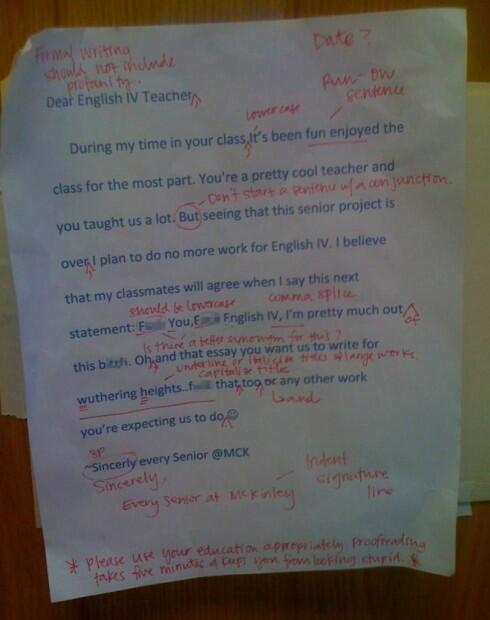 Formal writing
should not include
profanity.
Date?
Dear English IV Teacher
lowercase
Run-on
sentence
During my time in your class,It's been fun enjoyed the
class for the most part. You're a pretty cool teacher and
Don't start a sentence w/a conjunction.
you taught us a lot. But seeing that this senior project is
over I plan to do no more work for English IV. I believe
that my classmates will agree when I say this next
should be lowercase
comma splice
statement: F You,E English IV, I'm pretty much out
of
Is there a better synonym for this?
this b. Oh and that essay you want us to write for
underline or italicize titles of large works.
capitalize title
wuthering heights..f that too or any other work
and
you're expecting us to do☺
sp
~Sincerly every Senior @MCK
Sincerely,
Every Senior at McKinley
Indent
signature
line
* Please use your education appropriately. Proofreading
takes five minutes & keeps you from looking stupid. *